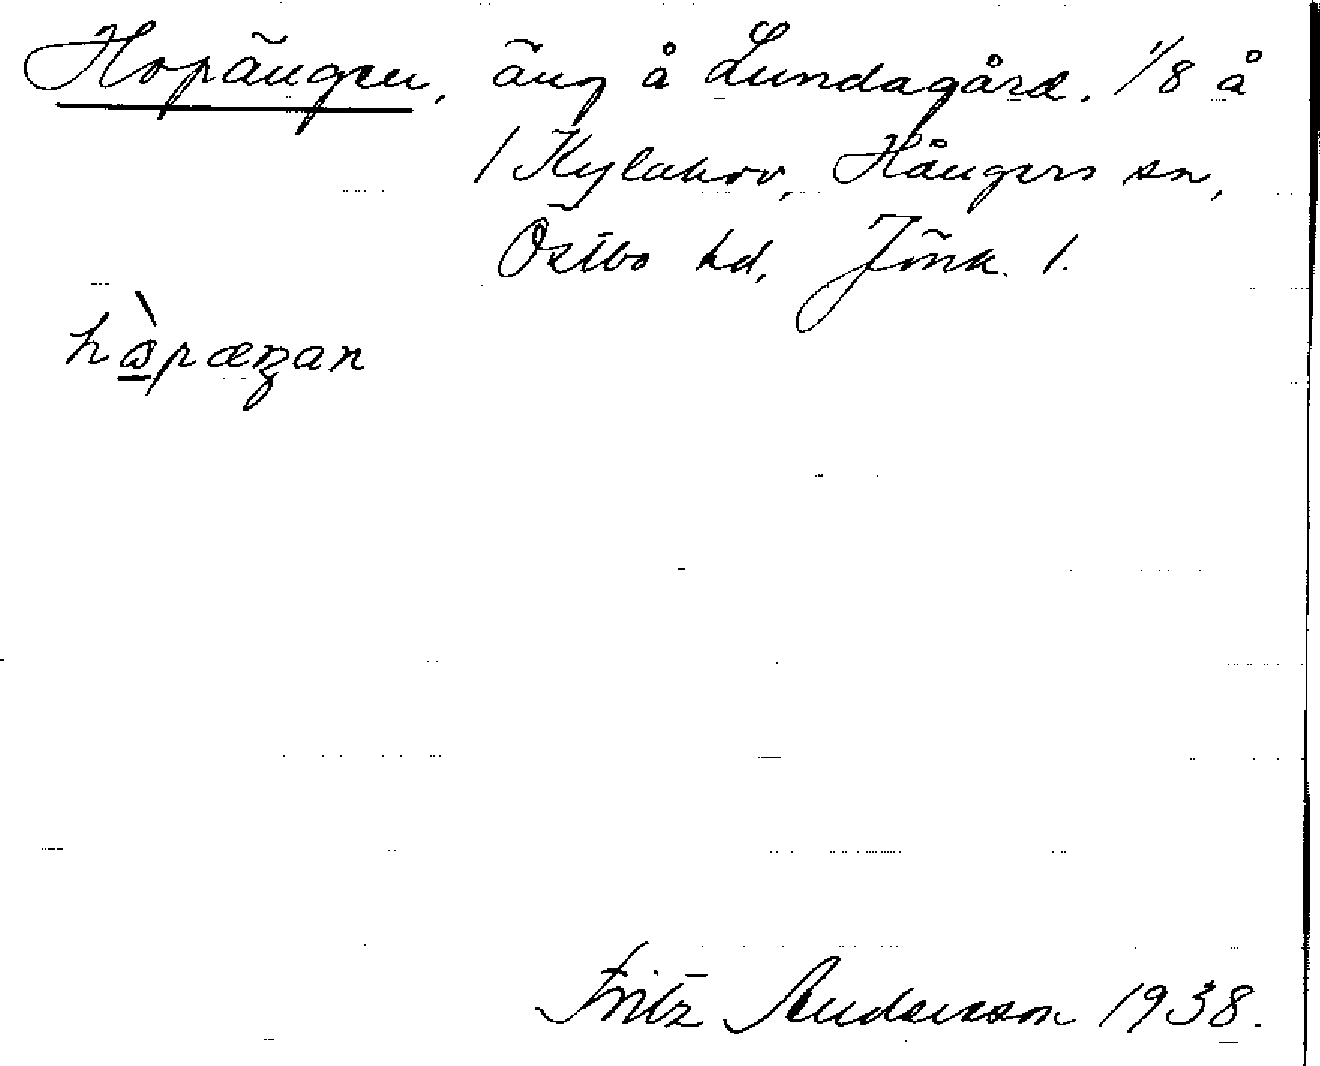 Hopängen, äng å Lundagård. 1/8 å
1 Kylakov, Hångers sn,
Östbo hd, Jönk. l.
Fritz Anderson 1938.